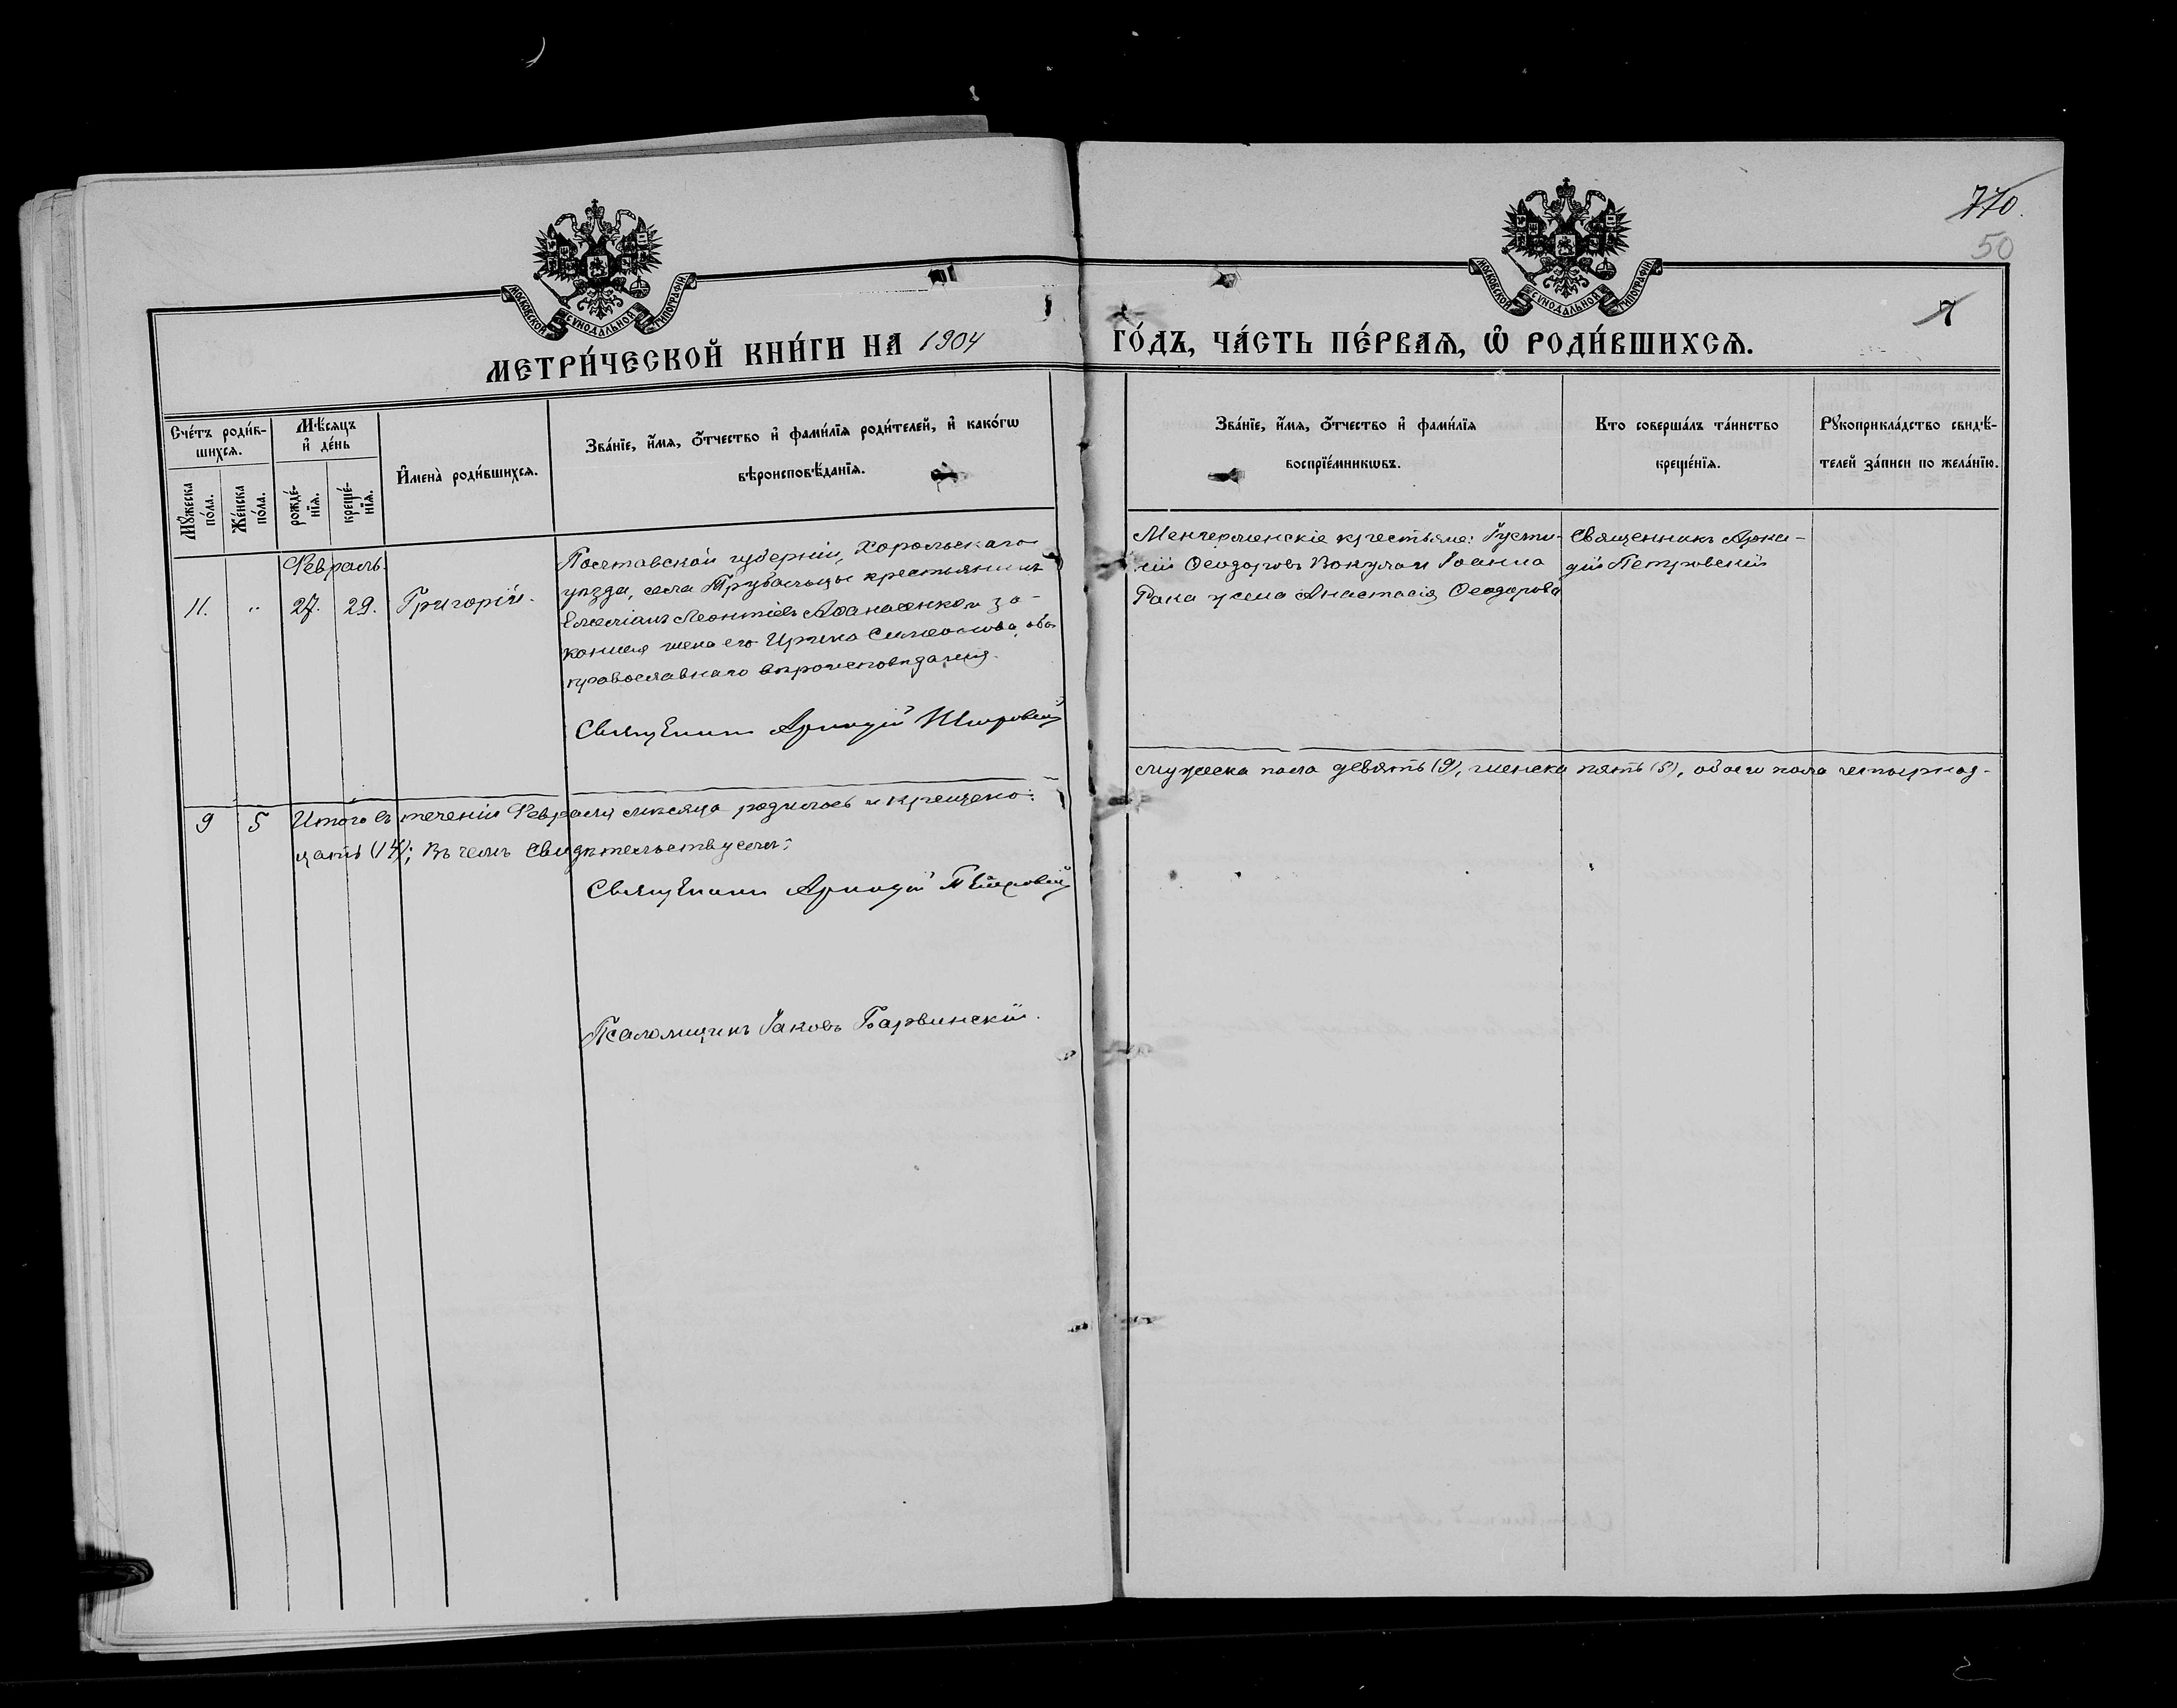 770.
50
7
МОСКОВСКОЙ СУНОДАЛЬНОЙ ТИПОГРАФІИ
МОСКОВСКОЙ СУНОДАЛЬНОЙ ТИПОГРАФІИ
МЕТРИ́ЧЕСКОЙ КНИ́ГИ НА 1904 ГО́ДЪ, ЧА́СТЬ ПЕ́РВАѦ, Ѡ҆ РОДИ́ВШИХСѦ.
Сче́тъ роди́в-
шихсѧ.
Мꙋ́жеска по́ла.
Же́нска по́ла.
Мѣ́сѧцъ
и҆ де́нь
рожде́-
нїѧ.
креще́-
нїѧ.
И҆мена̀ роди́вшихсѧ.
Зва́нїе, и҆́мѧ, ѻ҆́тчество и҆ фами́лїѧ роди́телей, и҆ како́гѡ
вѣроисповѣ́данїѧ.
Зва́нїе, и҆́мѧ, ѻ҆́тчество и҆ фами́лїѧ
воспрїе́мникѡвъ.
Кто соверша́лъ та́инство
креще́нїѧ.
Рꙋкоприкла́дство свидѣ́-
телей за́писи по жела́нїю.
Февраль.
11. " 27. 29. Григорій.
Полтавской губерніи, Хорольскаго
уѣзда, села Трубайцы крестьянинъ
Емеліанъ Леонтіевъ Аѳанасенко и за-
конная жена его Ирина Симеонова, оба
православнаго вѣроисповѣданія.
Священникъ Аркадій Петровскій
Менчерменскіе крестьяне: Іусти-
ній Ѳеодоровъ Вакула и Іоанна
Рака жена Анастасія Ѳеодорова
Священникъ Арка-
дій Петровскій
9 5 Итого въ теченіи Февраля мѣсяца родилось и крещено: мужеска пола девять (9), женска пять (5), обоего пола четырнад-
цать (14); въ чемъ свидѣтельствуемъ:
Священникъ Аркадій Петровскій
Псаломщикъ Іаковъ Барвинскій.